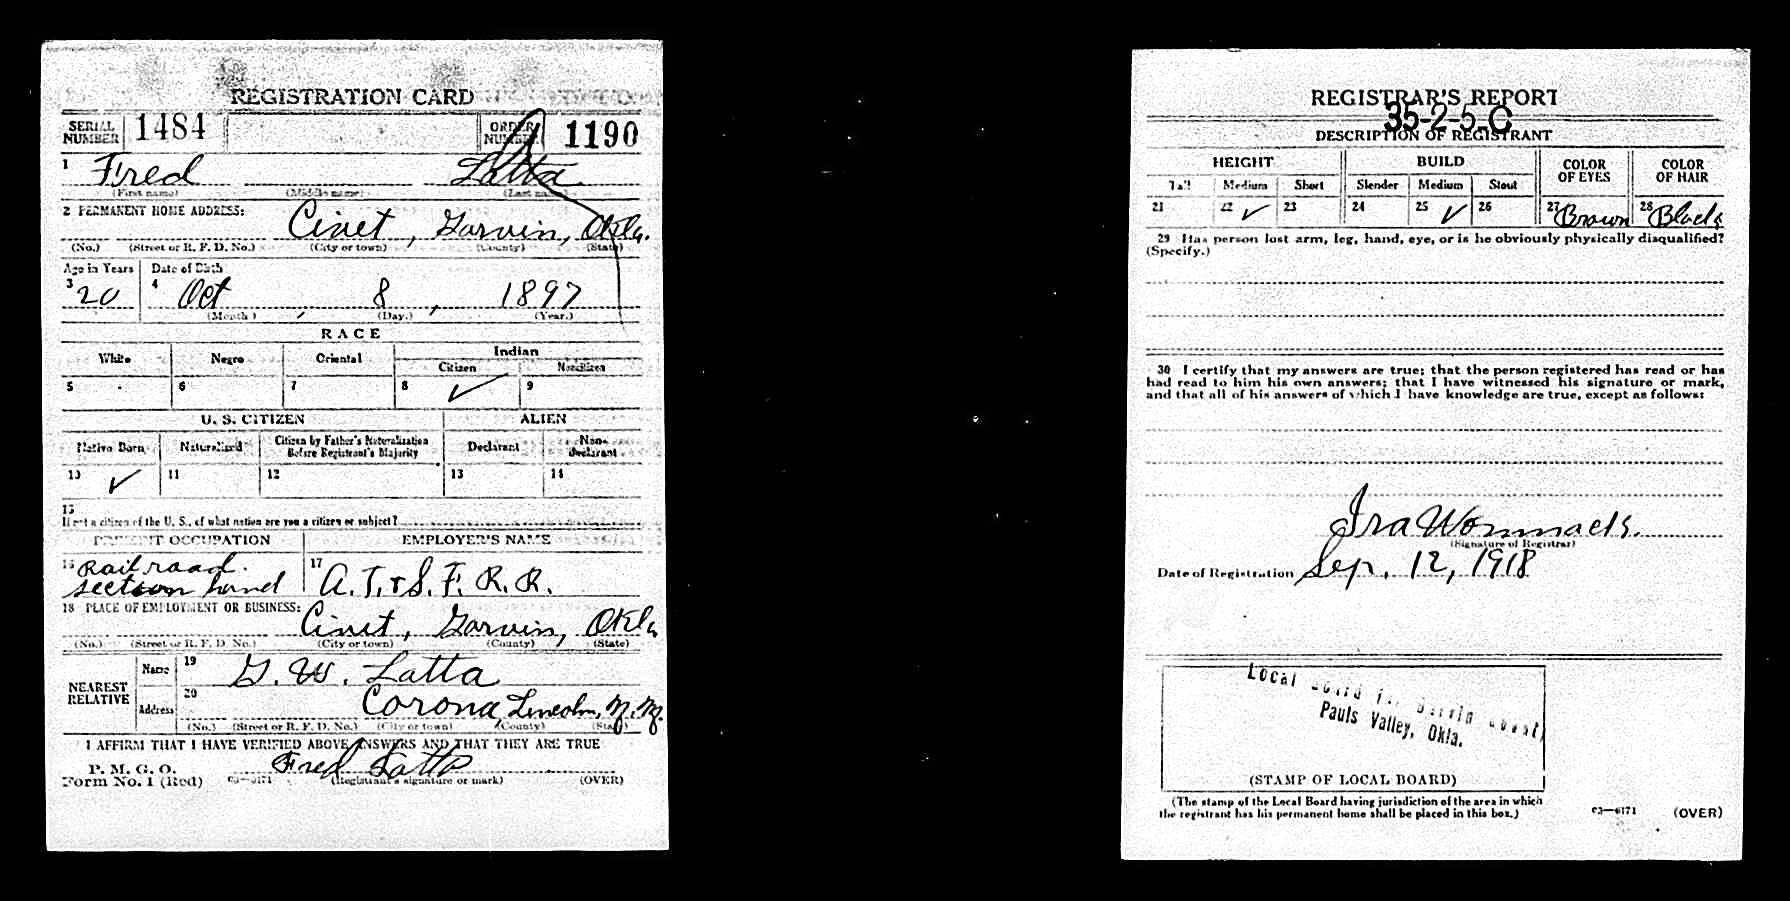 REGISTRATION CARD
SERIAL NUMBER 1484 ORDER NUMBER 1190
1 Fred Latta
(First name) (Middle name) (Last name)
2 PERMANENT HOME ADDRESS: Civet, Garvin, Okla.
(No.) (Street or R. F. D. No.) (City or town) (County) (State)
Age in Years Date of Birth
3 20 4 Oct , 8 , 1897
(Month) (Day.) (Year.)
RACE
White Negro Oriental Indian
Citizen Noncitizen
5 6 7 8 ✓ 9
U. S. CITIZEN ALIEN
Native Born Naturalized Citizen by Father's Naturalization Before Registrant's Majority Declarant Non-declarant
10 ✓ 11 12 13 14
15
If not a citizen of the U. S., of what nation are you a citizen or subject?
PRESENT OCCUPATION EMPLOYER'S NAME
16 Railroad section hand 17 A. T. & S. F. R. R.
18 PLACE OF EMPLOYMENT OR BUSINESS: Civet, Garvin, Okla
(No.) (Street or R. F. D. No.) (City or town) (County) (State)
NEAREST RELATIVE Name 19 G. W. Latta
Address 20 Corona, Lincoln, N. M.
(No.) (Street or R. F. D. No.) (City or town) (County) (State)
I AFFIRM THAT I HAVE VERIFIED ABOVE ANSWERS AND THAT THEY ARE TRUE
P. M. G. O.
Form No. 1 (Red) 03—6171 Fred Latta
(Registrant's signature or mark) (OVER)
REGISTRAR'S REPORT
35-2-5 C
DESCRIPTION OF REGISTRANT
HEIGHT BUILD COLOR OF EYES COLOR OF HAIR
Tall Medium Short Slender Medium Stout
21 22 ✓ 23 24 25 ✓ 26 27 Brown 28 Black
29 Has person lost arm, leg, hand, eye, or is he obviously physically disqualified?
(Specify.)
30 I certify that my answers are true; that the person registered has read or has
had read to him his own answers; that I have witnessed his signature or mark,
and that all of his answers of which I have knowledge are true, except as follows:
Ira Wommack.
(Signature of Registrar)
Date of Registration Sep. 12, 1918
Local Board for Garvin County
Pauls Valley, Okla.
(STAMP OF LOCAL BOARD)
(The stamp of the Local Board having jurisdiction of the area in which
the registrant has his permanent home shall be placed in this box.)
03—6171 (OVER)